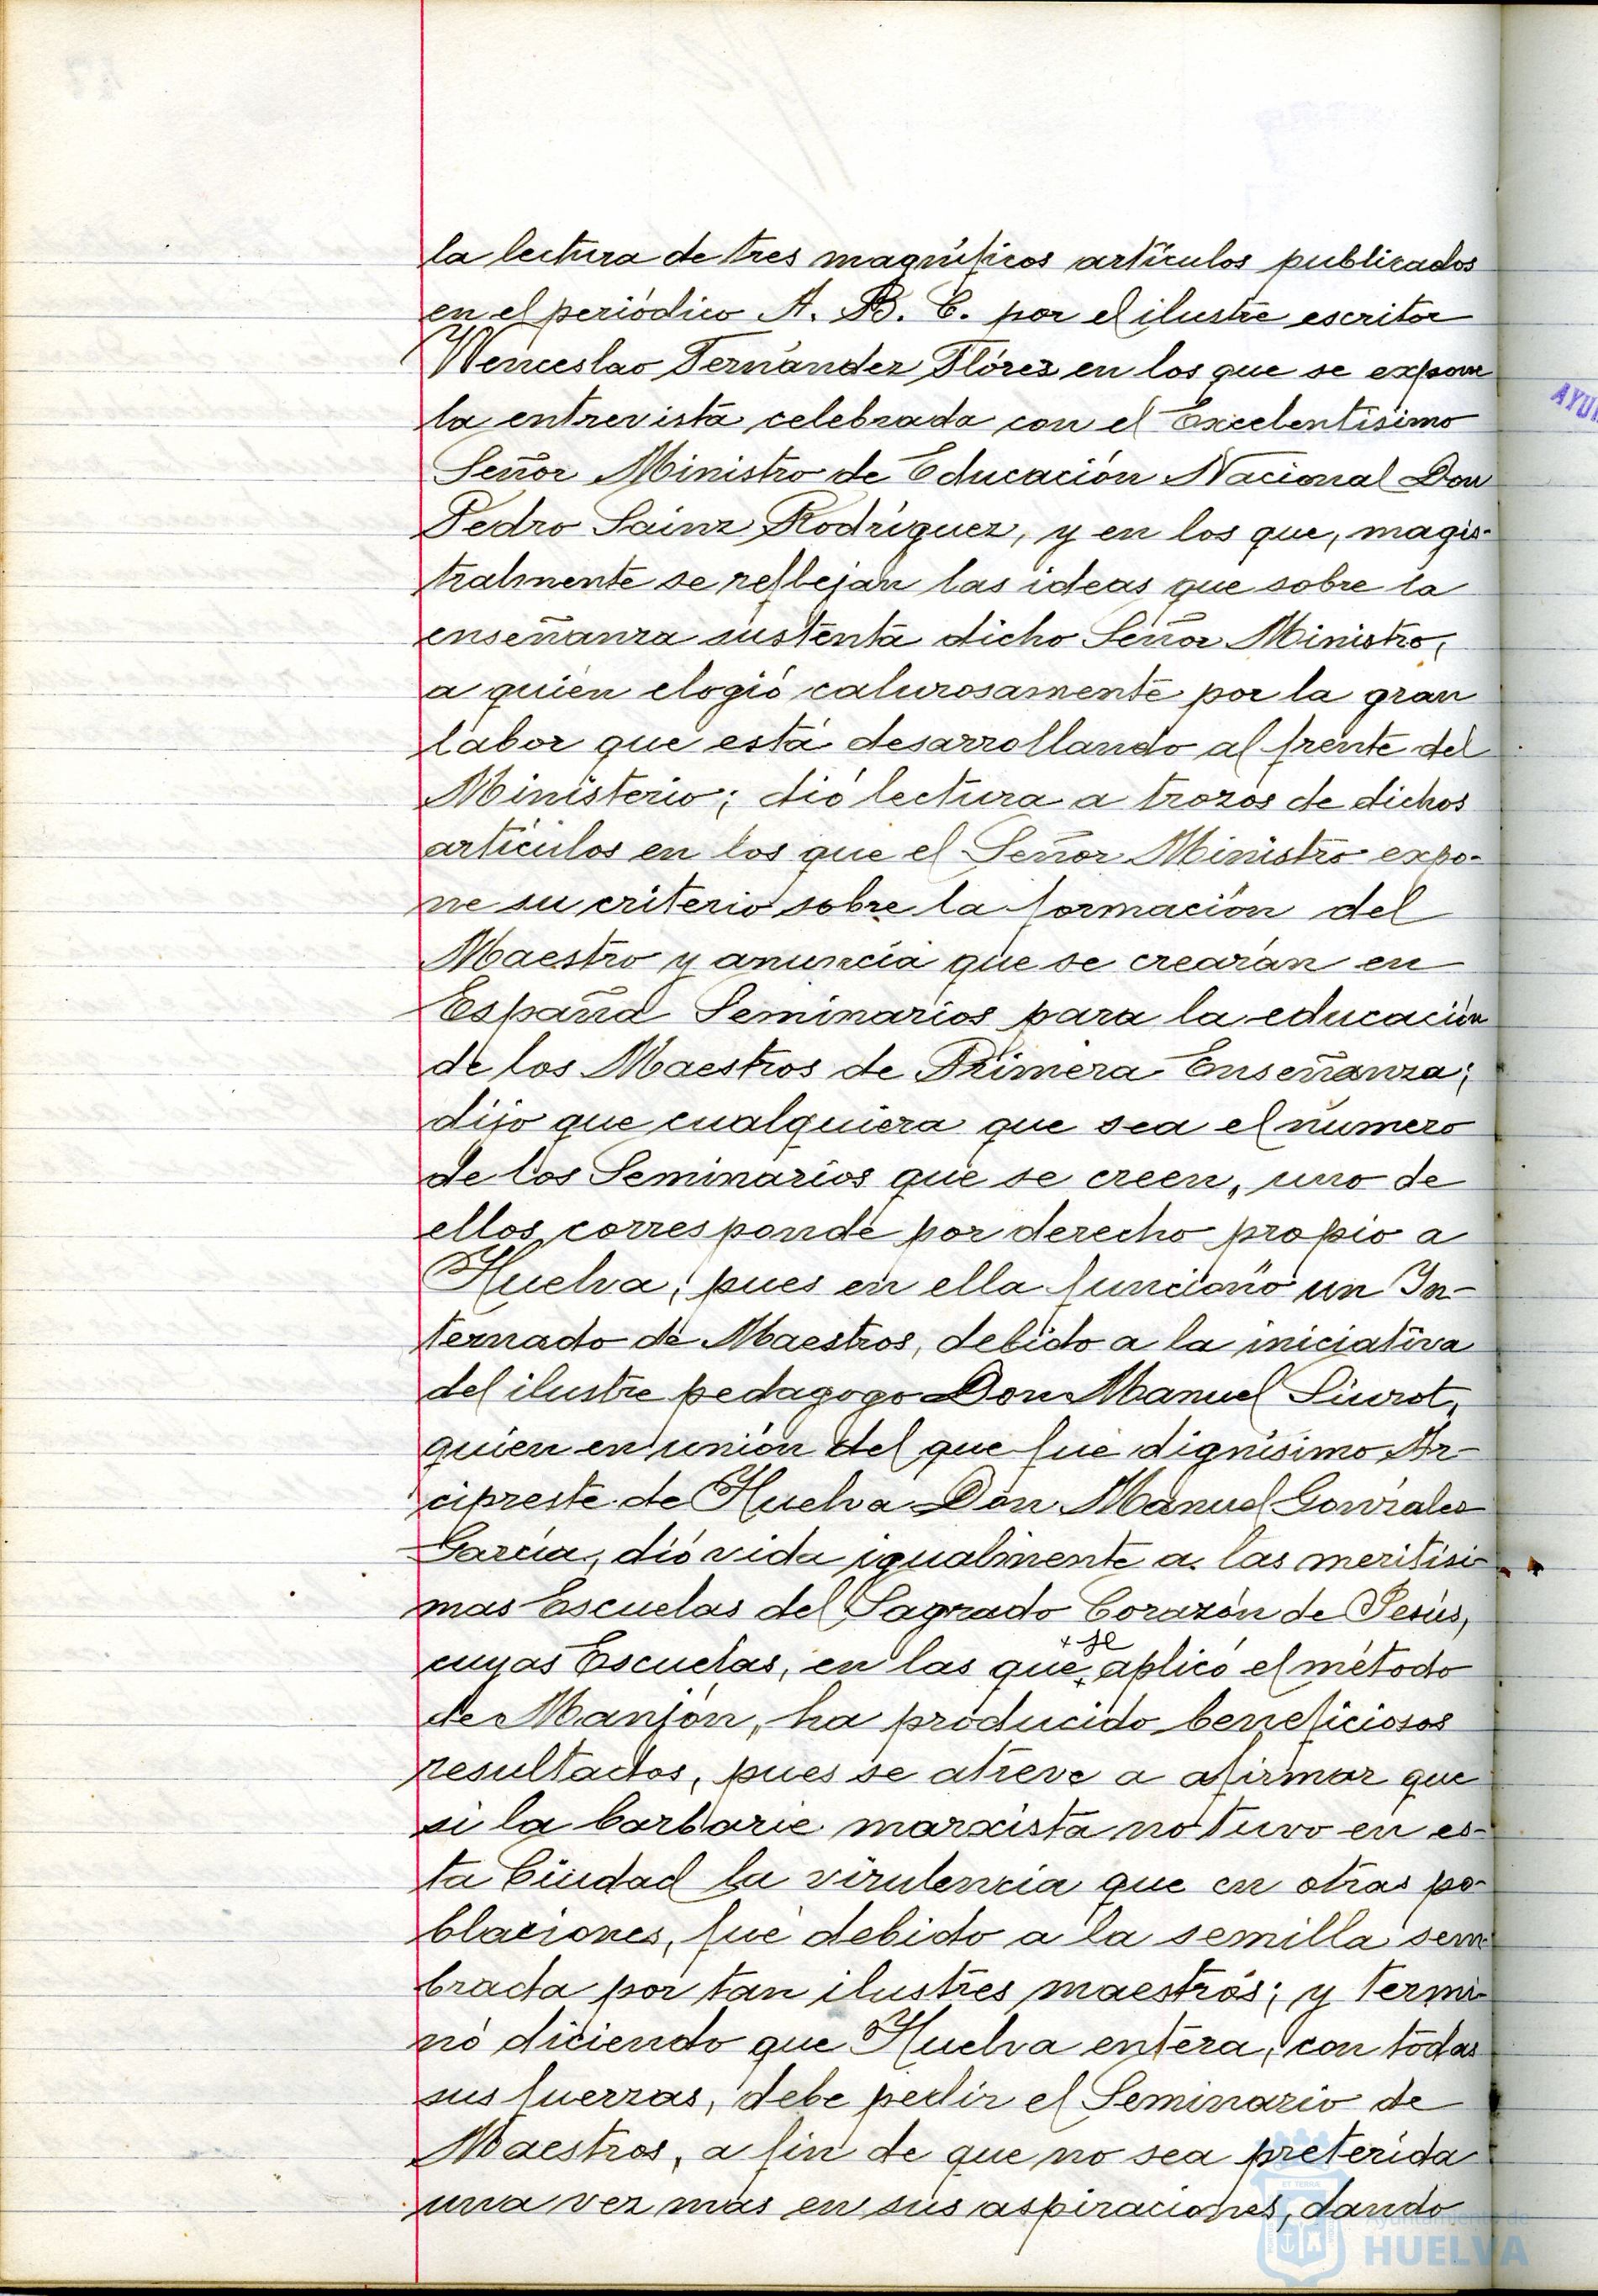 la lectura de tres magníficos artículos publicados
en el periódico A. B. C. por el ilustre escritor
Wenceslao Fernández Flórez en los que se expone
la entrevista celebrada con el Excelentísimo
Señor Ministro de Educación Nacional Don
Pedro Sainz Rodríguez, y en los que, magis-
tralmente se reflejan las ideas que sobre la
enseñanza sustenta dicho Señor Ministro,
a quién elogió calurosamente por la gran
labor que está desarrollando al frente del
Ministerio; dió lectura a trozos de dichos
artículos en los que el Señor Ministro expo-
ne su criterio sobre la formación del
Maestro y anuncia que se crearán en
España Seminarios para la educación
de los Maestros de Primera Enseñanza;
dijo que cualquiera que sea el número
de los Seminarios que se creen, uno de
ellos corresponde por derecho propio a
Huelva, pues en ella funcionó un In-
ternado de Maestros, debido a la iniciativa
del ilustre pedagogo Don Manuel Siurot,
quien en unión del que fué dignísimo Ar-
cipreste de Huelva Don Manuel González
García, dió vida igualmente a las meritísi-
mas Escuelas del Sagrado Corazón de Jesús,
cuyas Escuelas, en las que se aplicó el método
de Manjón, ha producido beneficiosos
resultados, pues se atreve a afirmar que
si la barbarie marxista no tuvo en es-
ta Ciudad la virulencia que en otras po-
blaciones, fué debido a la semilla sem
brada por tan ilustres maestros; y termi-
nó diciendo que Huelva entera, con todas
sus fuerzas, debe pedir el Seminario de
Maestros, a fin de que no sea preterida
una vez más en sus aspiraciones, dando
Ayuntamiento de
HUELVA